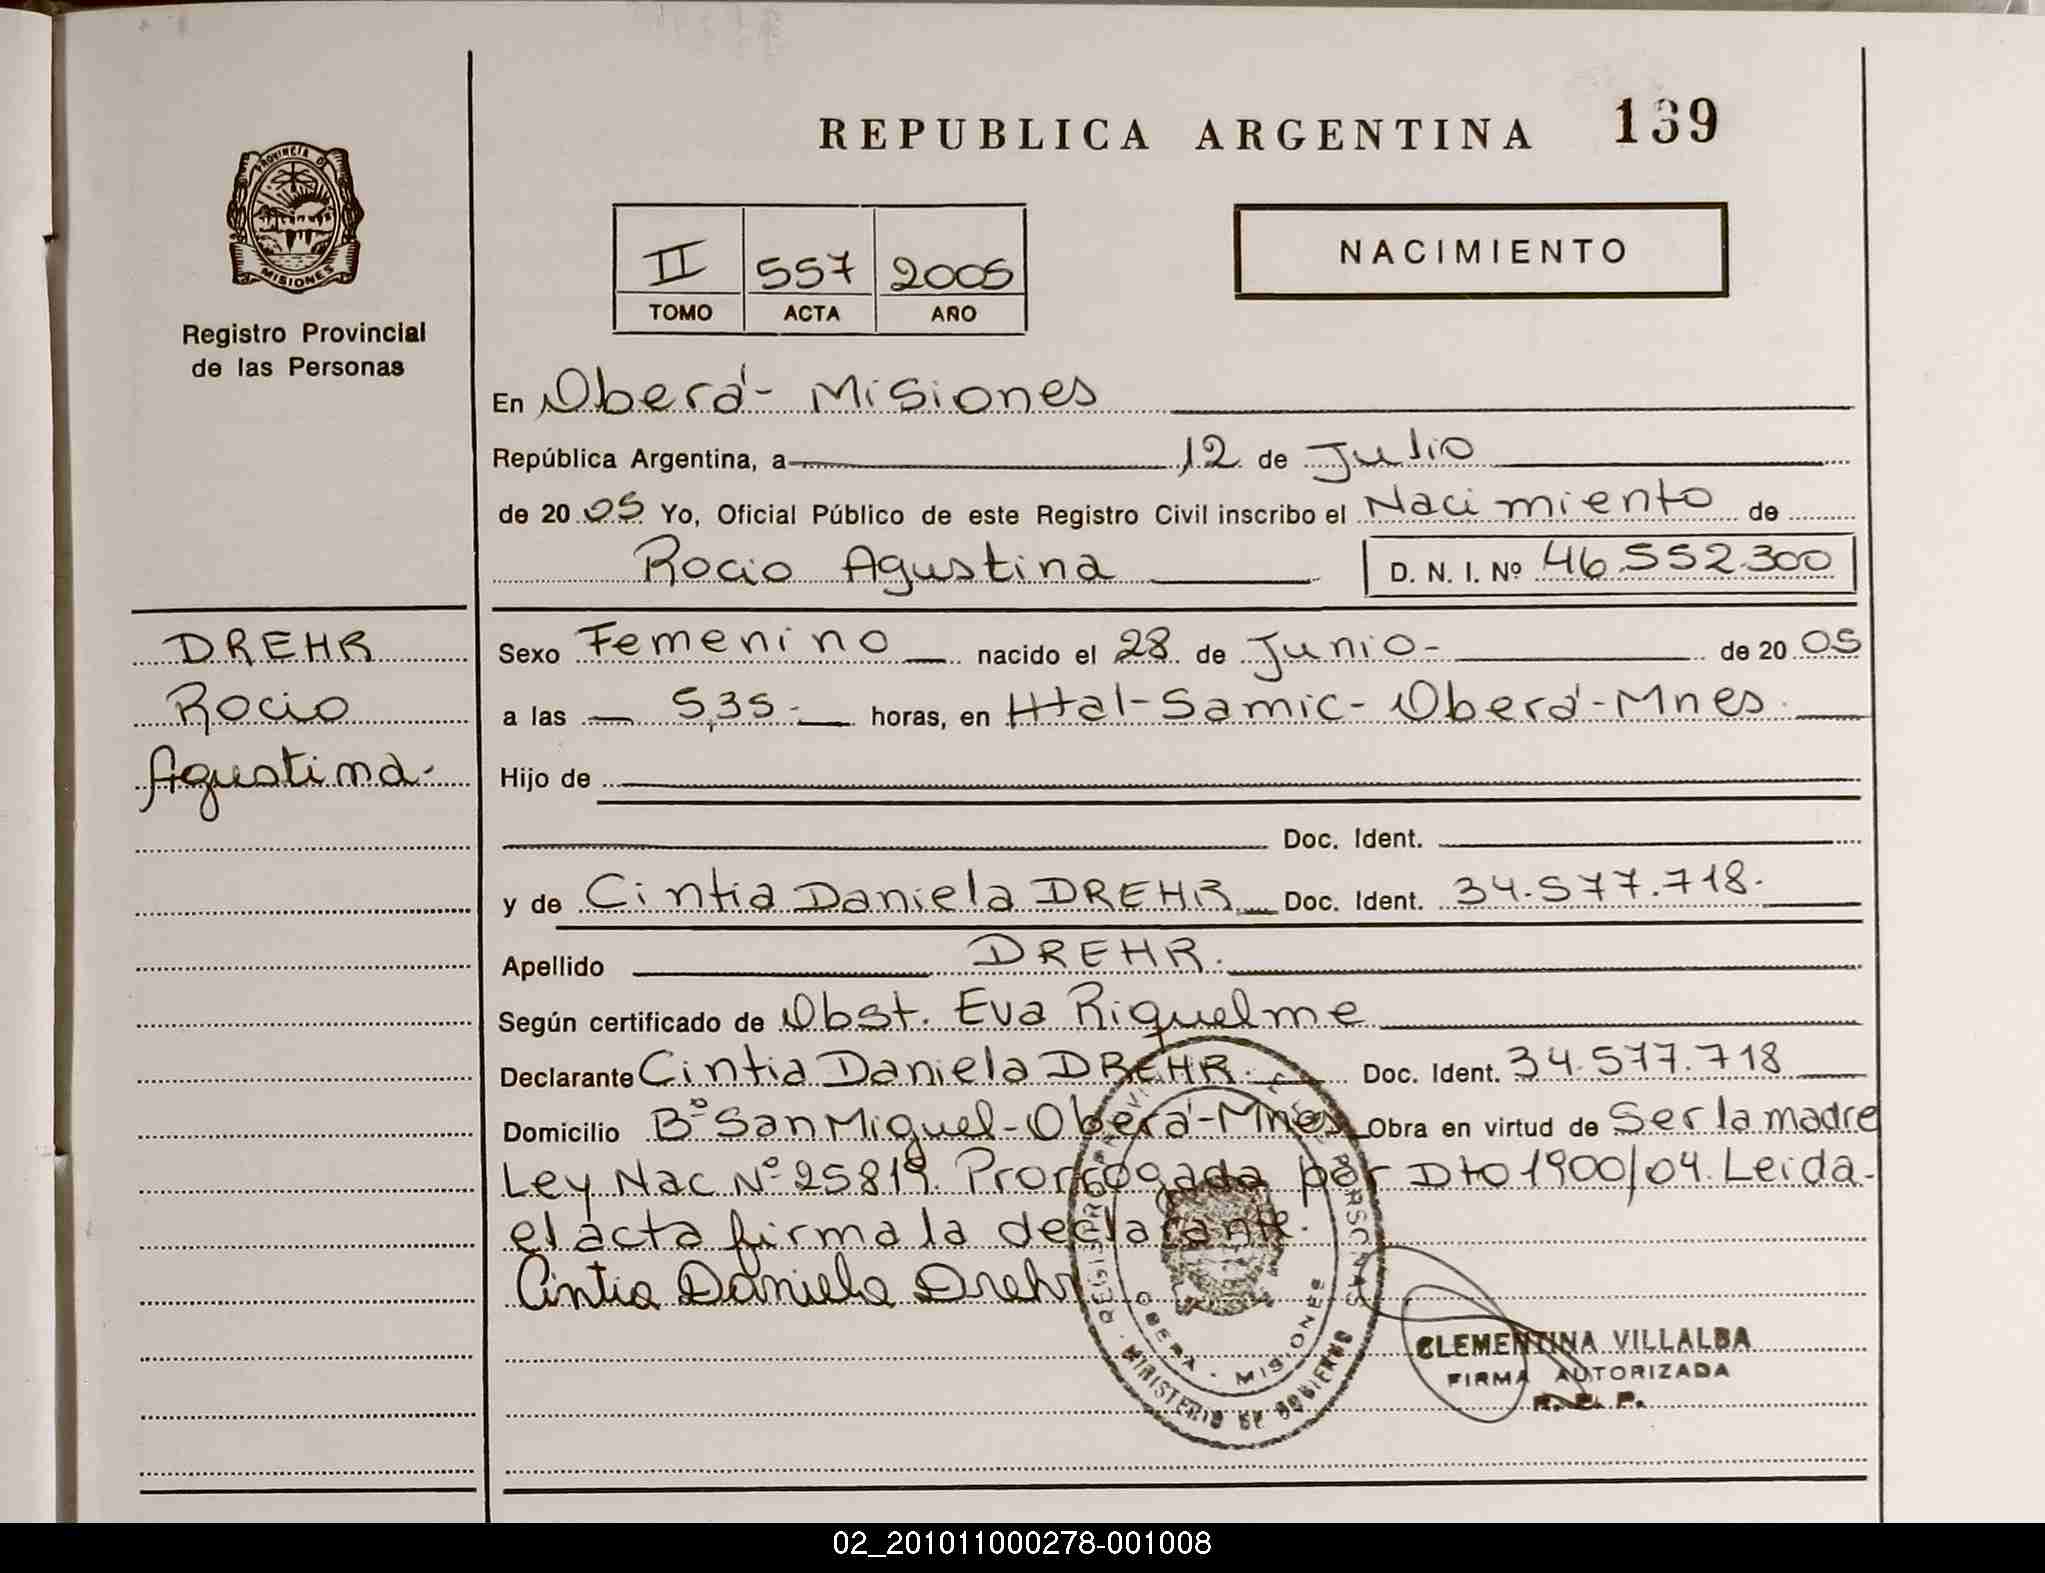 REPUBLICA ARGENTINA 139
PROVINCIA DE
MISIONES
Registro Provincial
de las Personas
NACIMIENTO
II 557 2005
TOMO ACTA AÑO
En Oberá - Misiones
República Argentina, a 12 de Julio
de 20 05 Yo, Oficial Público de este Registro Civil inscribo el Nacimiento de
Rocio Agustina D. N. I. Nº 46.552.300
DREHR
Rocio
Agustina.
Sexo Femenino nacido el 28 de Junio- de 20 05
a las 5,35- horas, en Htal-Samic- Oberá-Mnes.
Hijo de
Doc. Ident.
y de Cintia Daniela DREHR Doc. Ident. 34.577.718.
Apellido DREHR.
Según certificado de Obst. Eva Riquelme
Declarante Cintia Daniela DREHR. Doc. Ident. 34.577.718
Domicilio Bº San Miguel-Oberá-Mnes Obra en virtud de Ser la madre
Ley Nac Nº 25819. Prorrogada por Dto 1900/04. Leida-
el acta firma la declarante.
Cintia Daniela Drehr
OBERA - MISIONES
MINISTERIO DE GOBIERNO
CLEMENTINA VILLALBA
FIRMA AUTORIZADA
R. P. P.
02_201011000278-001008